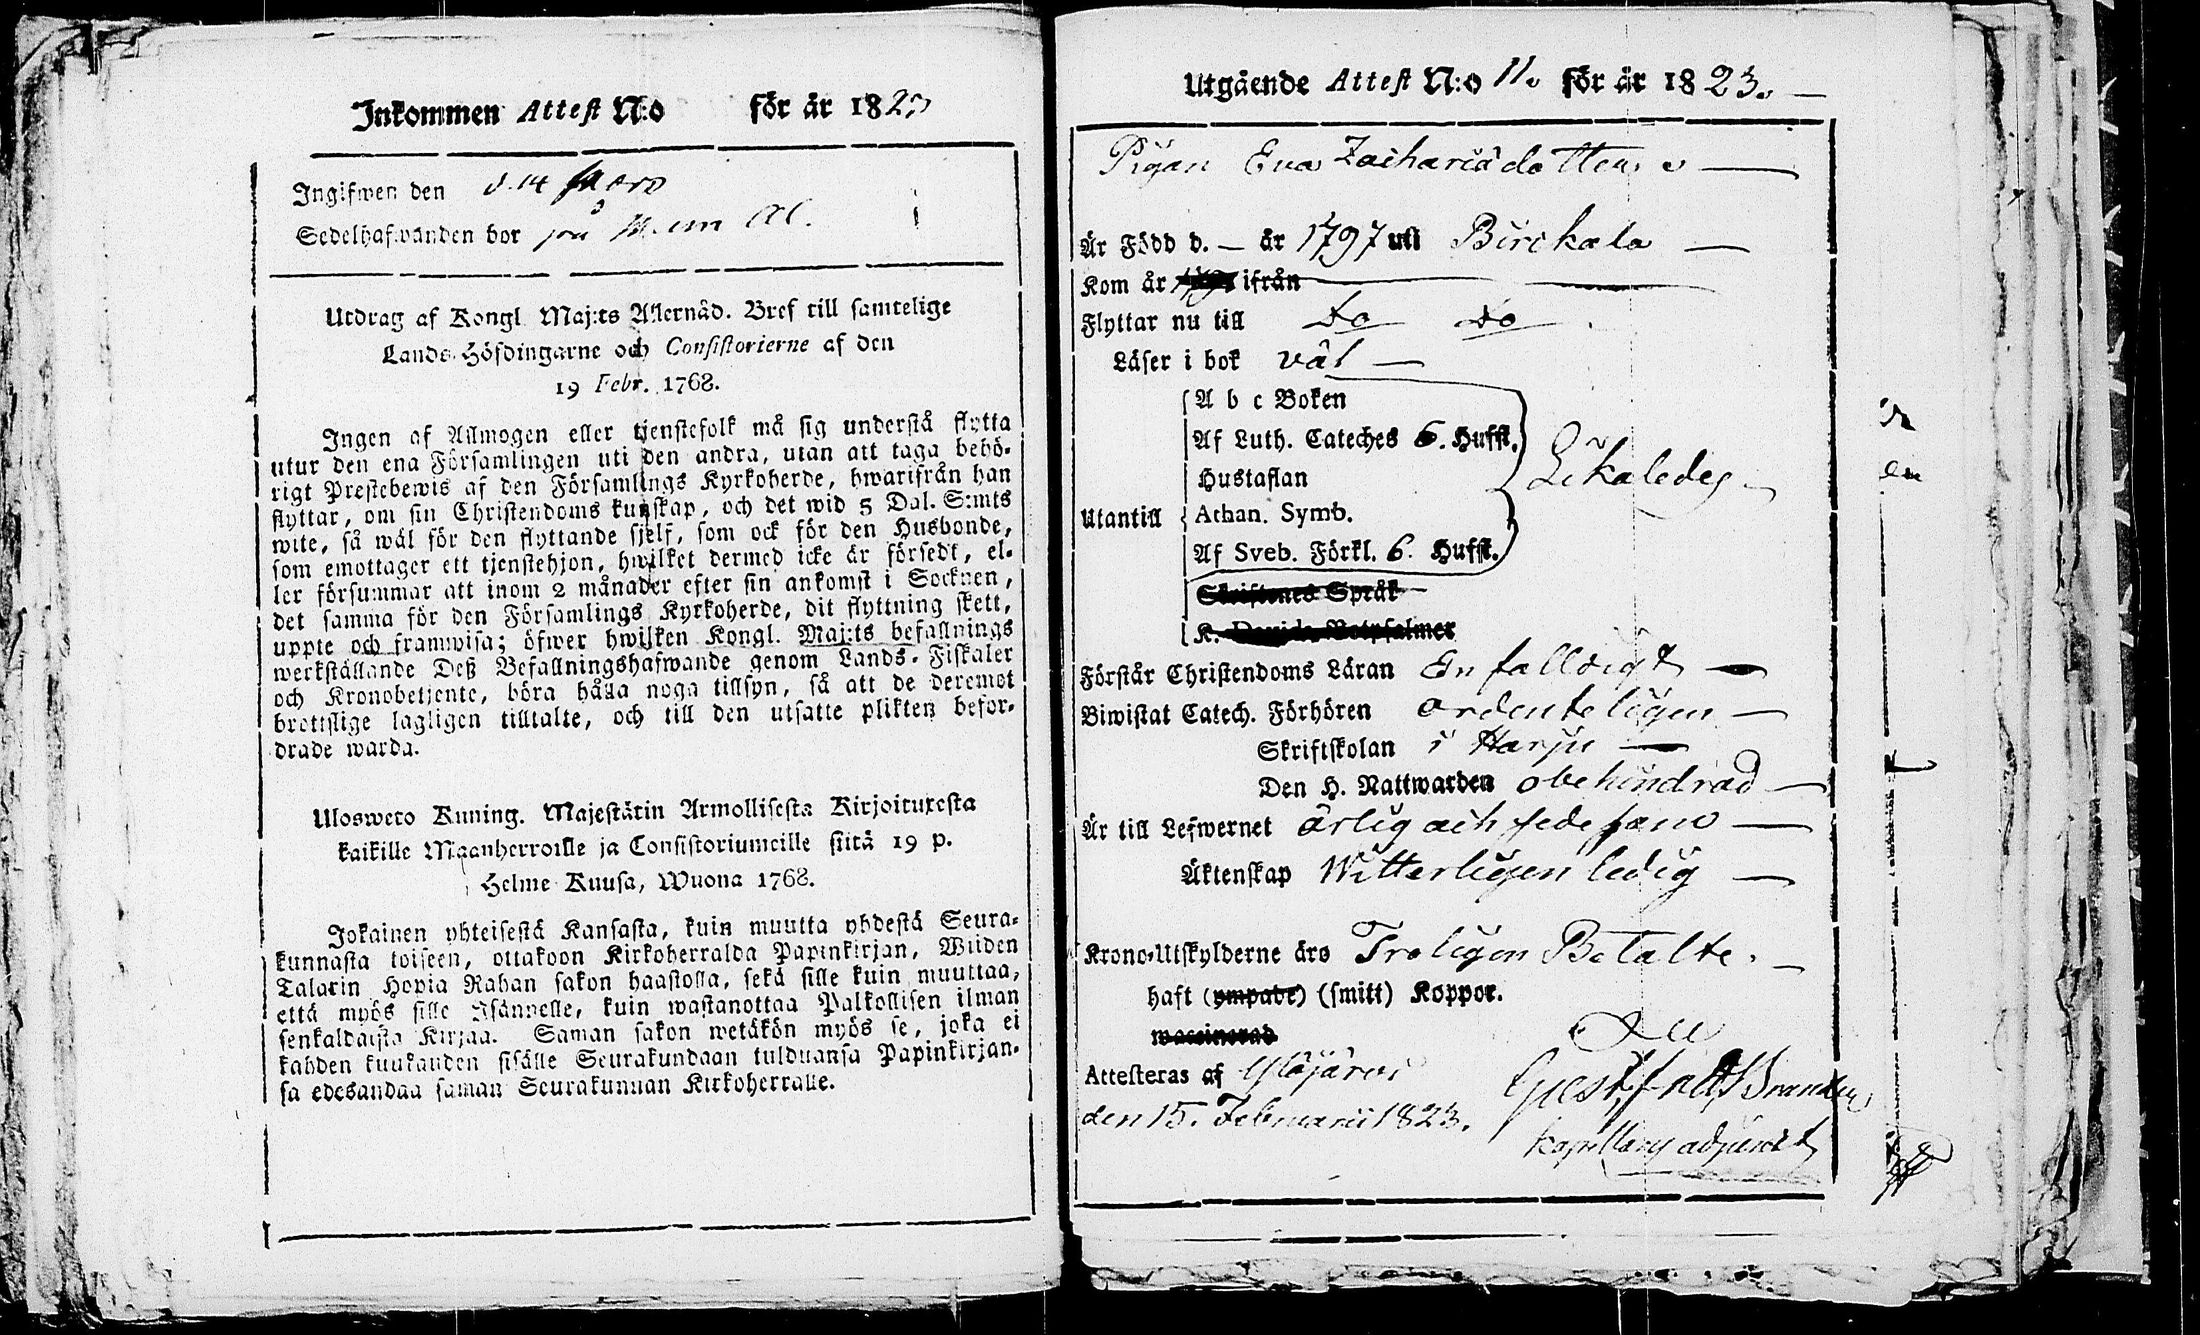 Inkommen Attest N:o för år 1823
Ingifwen den d. 14 Mars
Sedelhafwanden bor på
Utdrag af Kongl. Maj:ts Allernåd. Bref till samtelige
Lands-Höfdingarne och Consistorierne af den
19 Febr. 1768.
Ingen af Allmogen eller tjenstefolk må sig understå flytta
utur den ena Församlingen uti den andra, utan att taga behö-
rigt Prestebewis af den Församlings Kyrkoherde, hwarifrån han
flyttar, om sin Christendoms kunskap, och det wid 5 Dal. S:mts
wite, så wäl för den flyttande sjelf, som ock för den Husbonde,
som emottager ett tjenstehjon, hwilket dermed icke är försedt, el-
ler försummar att inom 2 månader efter sin ankomst i Socknen,
det samma för den Församlings Kyrkoherde, dit flyttning skett,
uppte och framwisa; öfwer hwilken Kongl. Maj:ts befallnings
werkställande Deß Befallningshafwande genom Lands-Fiskaler
och Kronobetjente, böra hålla noga tillsyn, så att de deremot
brottslige lagligen tilltalte, och till den utsatte plikten befor-
drade warda.
Ulosweto Kuning. Majestätin Armollisesta Kirjoituxesta
kaikille Maanherroille ja Consistoriumeille siitä 19 p.
Helme Kuusa, Wuona 1768.
Jokainen yhteisestä Kansasta, kuin muutta yhdestä Seura-
kunnasta toiseen, ottakoon Kirkoherralda Papinkirjan, Wiiden
Talarin Hopia Rahan sakon haastolla, sekä sille kuin muuttaa,
että myös sille Isännelle, kuin wastanottaa Palkollisen ilman
senkaldaista Kirjaa. Saman sakon wetäkön myös se, joka ei
kahden kuukauden sisälle Seurakundaan tulduansa Papinkirjan-
sa edesandaa saman Seurakunnan Kirkoherralle.
Utgående Attest N:o 11. för år 1823.
Pigan Eva Zachariädotter
Är Född d. — år 1797 uti Birckala
Kom år ifrån
Flyttar nu till Do Do
Läser i bok väl
A b c Boken
Af Luth. Cateches 6. Hufst.
Hustaflan
Likaledes
Utantill
Athan. Symb.
Af Sveb. Förkl. 6. Hufst.
Skriftenes Språk
K. Davids Botpsalmer
Förstår Christendoms Läran Enfalldigt
Biwistat Catech. Förhören ordenteligen
Skriftskolan i Harju
Den H. Nattwarden obehindrad
Är till Lefwernet ärlig och sedesam
Äktenskap Witterligen ledig
Krono-Utskylderne äro Troligen Betalte.
haft (ympade) (smitt) Koppor.
waccinerad
Attesteras af Ylöjärvi
den 15. Februarii 1823.
adjunct